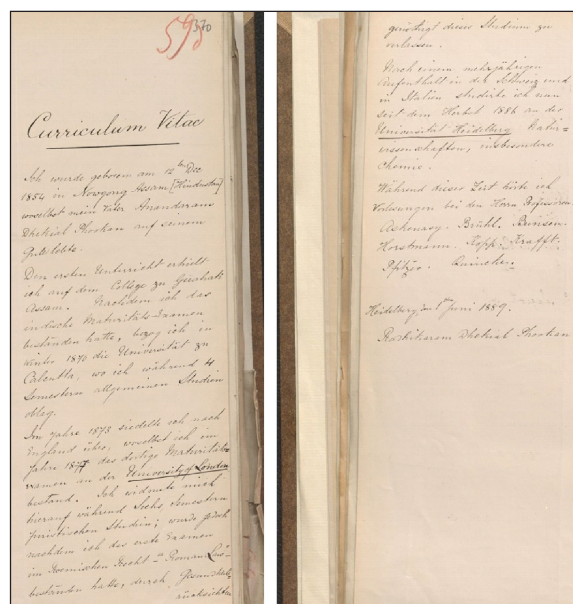 593
370
Curriculum Vitae
Ich wurde geboren am 12ten Dec.
1856 in Nowgong Assam [Hindustan]
woselbst mein Vater Anandaram
Dhekial Phookan auf seinem
Gute lebte.
Den ersten Unterricht erhielt
ich auf dem College zu Gauhati
Assam. Nachdem ich das
indische Maturitäts-Examen
bestanden hatte, bezog ich im
Winter 1870 die Universität zu
Calcutta, wo ich während 4
Semestern allgemeinen Studien
oblag.
Im Jahre 1873 siedelte ich nach
England über, woselbst ich im
Jahre 1874 das dortige Maturitäts-
examen an der University of London
bestand. Ich widmete mich
hierauf während sechs Semestern
juristischen Studien; wurde jedoch
nachdem ich das erste Examen
im Roemischen Recht "Roman Law"
bestanden hatte, durch Gesundheits-
rücksichten
genötigt dieses Studium zu
verlassen.
Nach einem mehrjährigen
Aufenthalt in der Schweiz und
in Italien studirte ich nun
seit dem Herbst 1886 an der
Universität Heidelberg Natur=
wissenschaften, insbesondere
Chemie.
Während dieser Zeit hörte ich
Vorlesungen bei den Herrn Professoren
Askenasy. Brühl. Bunsen.
Horstmann. Kopp. Krafft.
Pfitzer. Quincke.
Heidelberg, den 1ten Juni 1889.
Dhekial Phookan